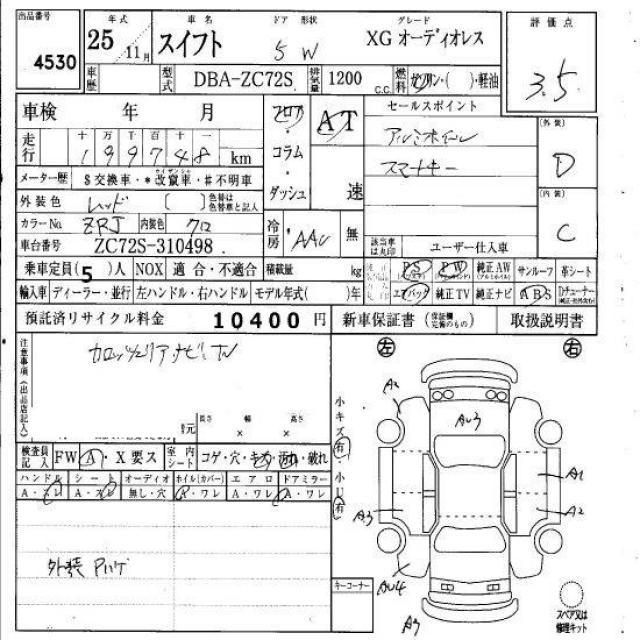 出品番号 4530
年式 25 11月
車名 スイフト
ドア 形状 5 W
グレード XG オーディオレス
評価点 3.5
車歴
型式 DBA-ZC72S
排気量 1200 c.c.
燃料 ガソリン・( )・軽油
車検 年 月
フロア・コラム・ダッシュ
AT 速
セールスポイント
アルミホイール
スマートキー
外装 D
内装 C
走行 十 万 千 百 十 一
199748 km
メーター歴 $交換車・*改竄車・#不明車
外装色 レッド [ ] 色替は色替車名と記入
カラーNo. ZRJ 内装色 クロ
冷房 AAC 無
車台番号 ZC72S-310498
該当車は丸印 ユーザー仕入車
乗車定員(5)人 NOX 適合・不適合 積載量 kg
PS PW 純正AW サンルーフ 革シート
輸入車 ディーラー・並行 左ハンドル・右ハンドル モデル年式( )年
エアバッグ 純正TV 純正ナビ ABS Dチューナー
預託済リサイクル料金 10400 円
新車保証書 (保証欄完備のもの) 取扱説明書
注意事項(出品店記入)
カロッツェリアナビTV
長さ 幅 高さ
元 × ×
左 右
小キズ有・小U有
検査員記入 FW A・X要ス
室内シート コゲ・穴・キズ・汚れ・破れ
ハンドル シート オーディオ ホイル(カバー) エアロ ドアミラー
A・スレ A・スレ 無し・穴 A・ワレ A・ワレ A・ワレ
外装 Pハゲ
A2
AU3
A1
A2
A3
AU4
A3
キーコーナー
スペア又は修理キット